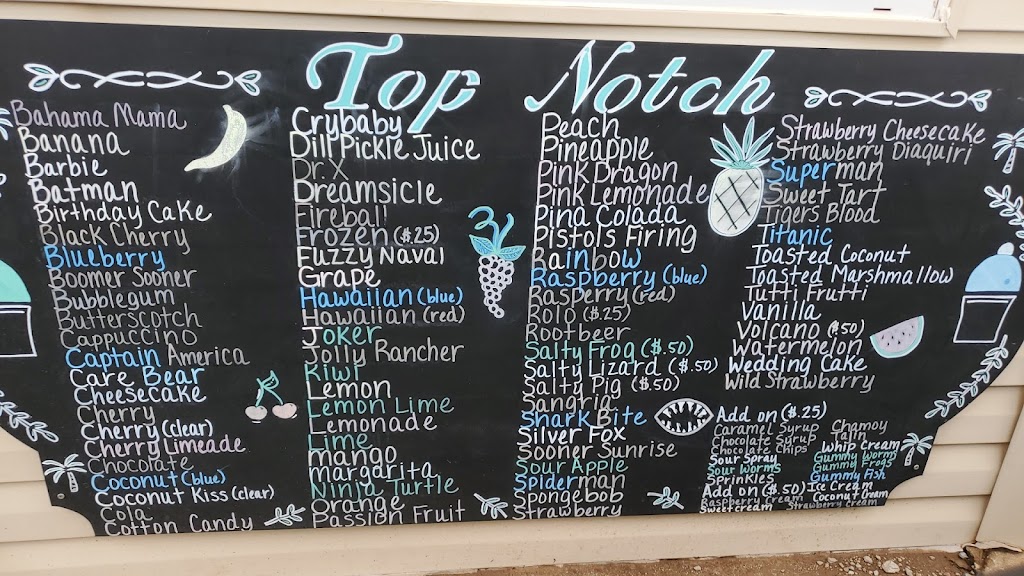 Top Notch
Bahama Mama
Banana
Barbie
Batman
Birthday Cake
Black Cherry
Blueberry
Boomer Sooner
Bubblegum
Butterscotch
Cappuccino
Captain America
Care Bear
Cheesecake
Cherry
Cherry (clear)
Cherry Limeade
Chocolate
Coconut (blue)
Coconut Kiss (clear)
Cola
Cotton Candy
Crybaby
Dill Pickle Juice
Dr. X
Dreamsicle
Fireball
Frozen ($.25)
Fuzzy Naval
Grape
Hawaiian (blue)
Hawaiian (red)
Joker
Jolly Rancher
Kiwi
Lemon
Lemon Lime
Lemonade
Lime
Mango
Margarita
Ninja Turtle
Orange
Passion Fruit
Peach
Pineapple
Pink Dragon
Pink Lemonade
Pina Colada
Pistols Firing
Rainbow
Raspberry (blue)
Rasperry (red)
Rolo ($.25)
Rootbeer
Salty Frog ($.50)
Salty Lizard ($.50)
Salty Pig ($.50)
Sangria
Shark Bite
Silver Fox
Sooner Sunrise
Sour Apple
Spiderman
Spongebob
Strawberry
Strawberry Cheesecake
Strawberry Diaquiri
Superman
Sweet Tart
Tigers Blood
Titanic
Toasted Coconut
Toasted Marshmallow
Tutti Frutti
Vanilla
Volcano ($.50)
Watermelon
Wedding Cake
Wild Strawberry
Add on ($.25)
Caramel Syrup
Chocolate Syrup
Chocolate Chips
Sour Spray
Sour Worms
Sprinkles
Chamoy
Tajin
Whip Cream
Gummy Worms
Gummy Frogs
Gummy Fish
Add on ($.50) Ice Cream
Raspberry Cream Coconut Cream
Sweetcream Strawberry Cream